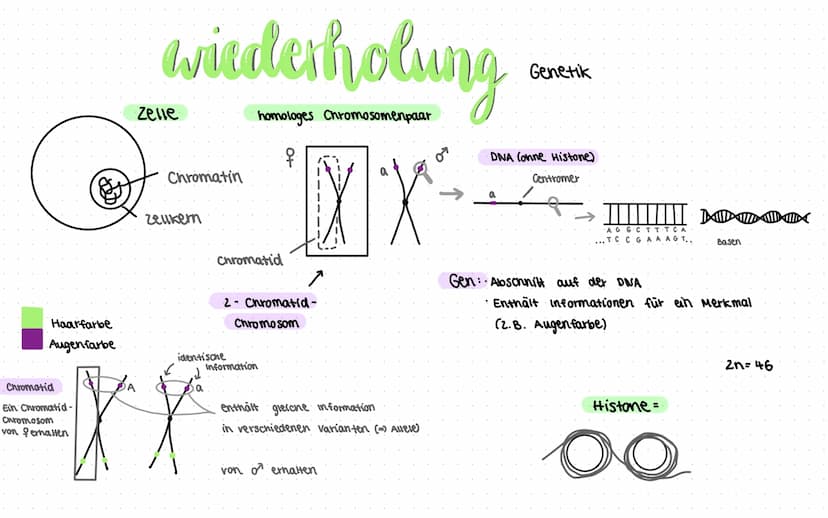 wiederholung
Genetik
Zelle
homologes Chromosomenpaar
♀
a
♂
DNA (ohne Histone)
Centromer
a
Chromatin
Zellkern
A G G C T T T C A
...T C C G A A A G T..
Basen
Chromatid
2-Chromatid-
Chromosom
Gen: · Abschnitt auf der DNA
· Enthält Informationen für ein Merkmal
(z.B. Augenfarbe)
Haarfarbe
Augenfarbe
2n=46
identische
Information
Chromatid
A
a
Ein Chromatid-
Chromosom
von ♀ erhalten
enthält gleiche Information
in verschiedenen Varianten (=> Allele)
von ♂ erhalten
Histone =